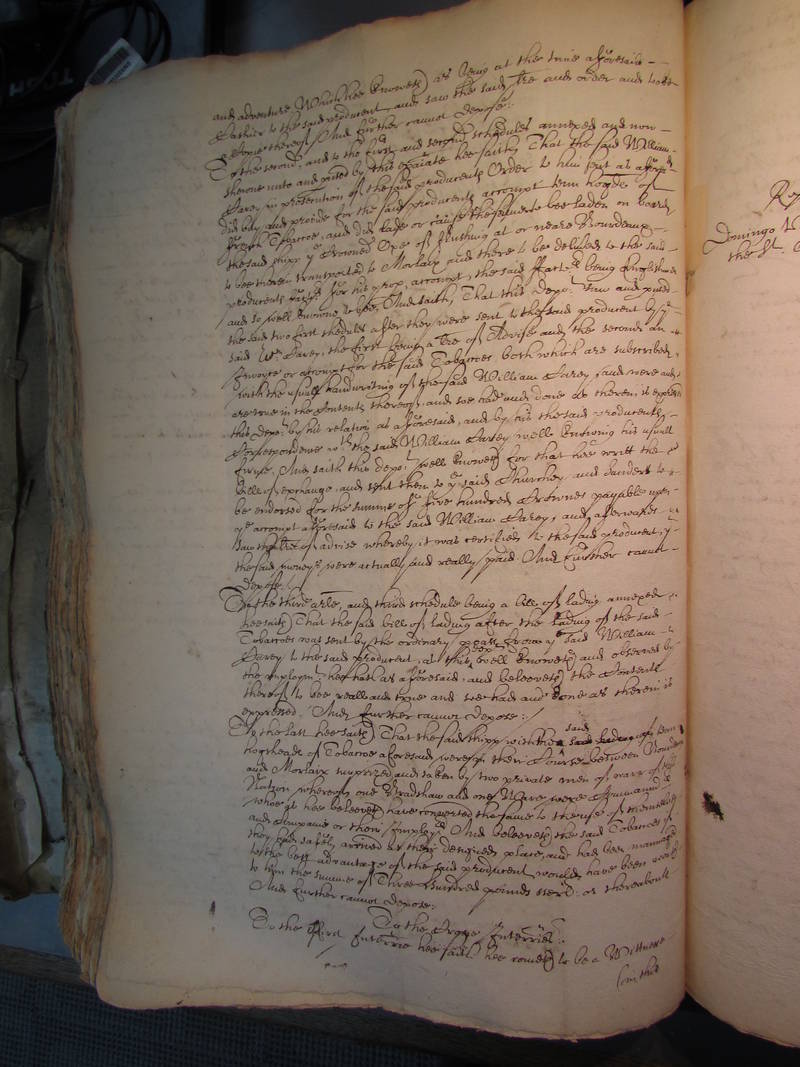 and adventure Which hee knoweth as being at the time aforesaid
Cashier to the said producent and saw the said lre and order and tooke
Copie thereof And further cannot depose:
To the second, and to the first and second schedules annexed and now
showne unto and perused by this hee saith, That the said William
Davey in prosecution of the said producents Order to him put as aforesd
did buy and provide for the said producents accompt tenn hogsds of
french Tobaccoe, and did lade or cause the same to bee laden on board
the said shipp ye Crowned of flushing at or neare Bourdeaux
to bee therein transported to Morlaix and there to be delivered to the said
producents factors for his prop, accompt, the said factors being Englishmen
and so well knowne to bee, And saith, That this depot saw and
the said two first schedules after they were sent to the said producent by ye
said Wm Davey, the first being a lre of Advise and the second an
Invoyce or accompt for the said Tobaccoes both which are subscribed
with the usuall handwriting of the said William Davey, and were and
are true in the Contents thereof, and soe had and done as therein is expressed
this depot by his relation as aforesaid, and by his the said producents
Correspondence wth the said William Davey well knowing his usuall
firme. And saith this depot well knoweth for that hee writt the
bill of exchange, and sent them to ye said and Sanders to
be endorsed for the summe of five hundred Crownes payable upon
ye accompt aforesaid to the said William Davey, and afterwards
saw the lre of advise whereby it was certified to the said producent, yt
the said moneys were actually and really paid And further cannot
depose.
To the third arle, and third schedule being a bill of lading annexed
hee saith That the said bill of lading after the lading of the said
Tobaccoes was sent by the ordinary post from ye said William
Davey to the said producent, as this depot well knoweth and observed by
the imploymt hee hath as aforesaid, and beleeveth the Contents
thereof to bee reall and true and soe had and done as therein is
expressed. And further cannot depose:
To the last hee saith That the said shipp with the said tenn
hogsheads of Tobaccoe aforesaid were in their Course betweene Bourdeaux
and Morlaix surprized and taken by two private men of warr of this
Nation whereof one Bradshaw and one Ware were Commanders
whoe as hee beleeveth have converted the same to the use of themselves
and Companie or their Imployers And beleeveth the said Tobaccoes if
they had safely arrived at their designed place, and had been managed
to the best advantage of the said producent would have been worth
to him the summe of Three hundred pounds sterl: or thereabouts
And further cannot depose:
To the Crosse Interries:
To the first Interrie hee saith hee cometh to be a Wittnesse
in this
Domingo
the St.